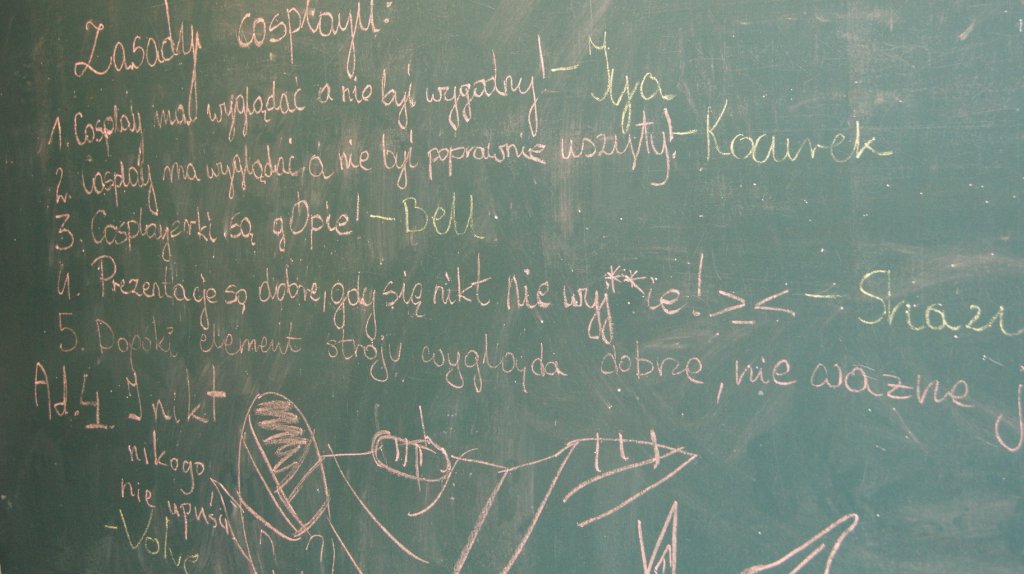 Zasady cosplayu:
1. Cosplay ma wyglądać a nie być wygodny! - Iya
2. Cosplay ma wyglądać, a nie być poprawnie uszyty! - Kocurek
3. Cosplayerki są gOpie! - Bell
4. Prezentacje są dobre, gdy się nikt nie wyj**ie! >_< -
5. Dopóki element stroju wygląda dobrze, nie ważne j
Ad.4 I nikt
nikogo
nie upuści
-Volve